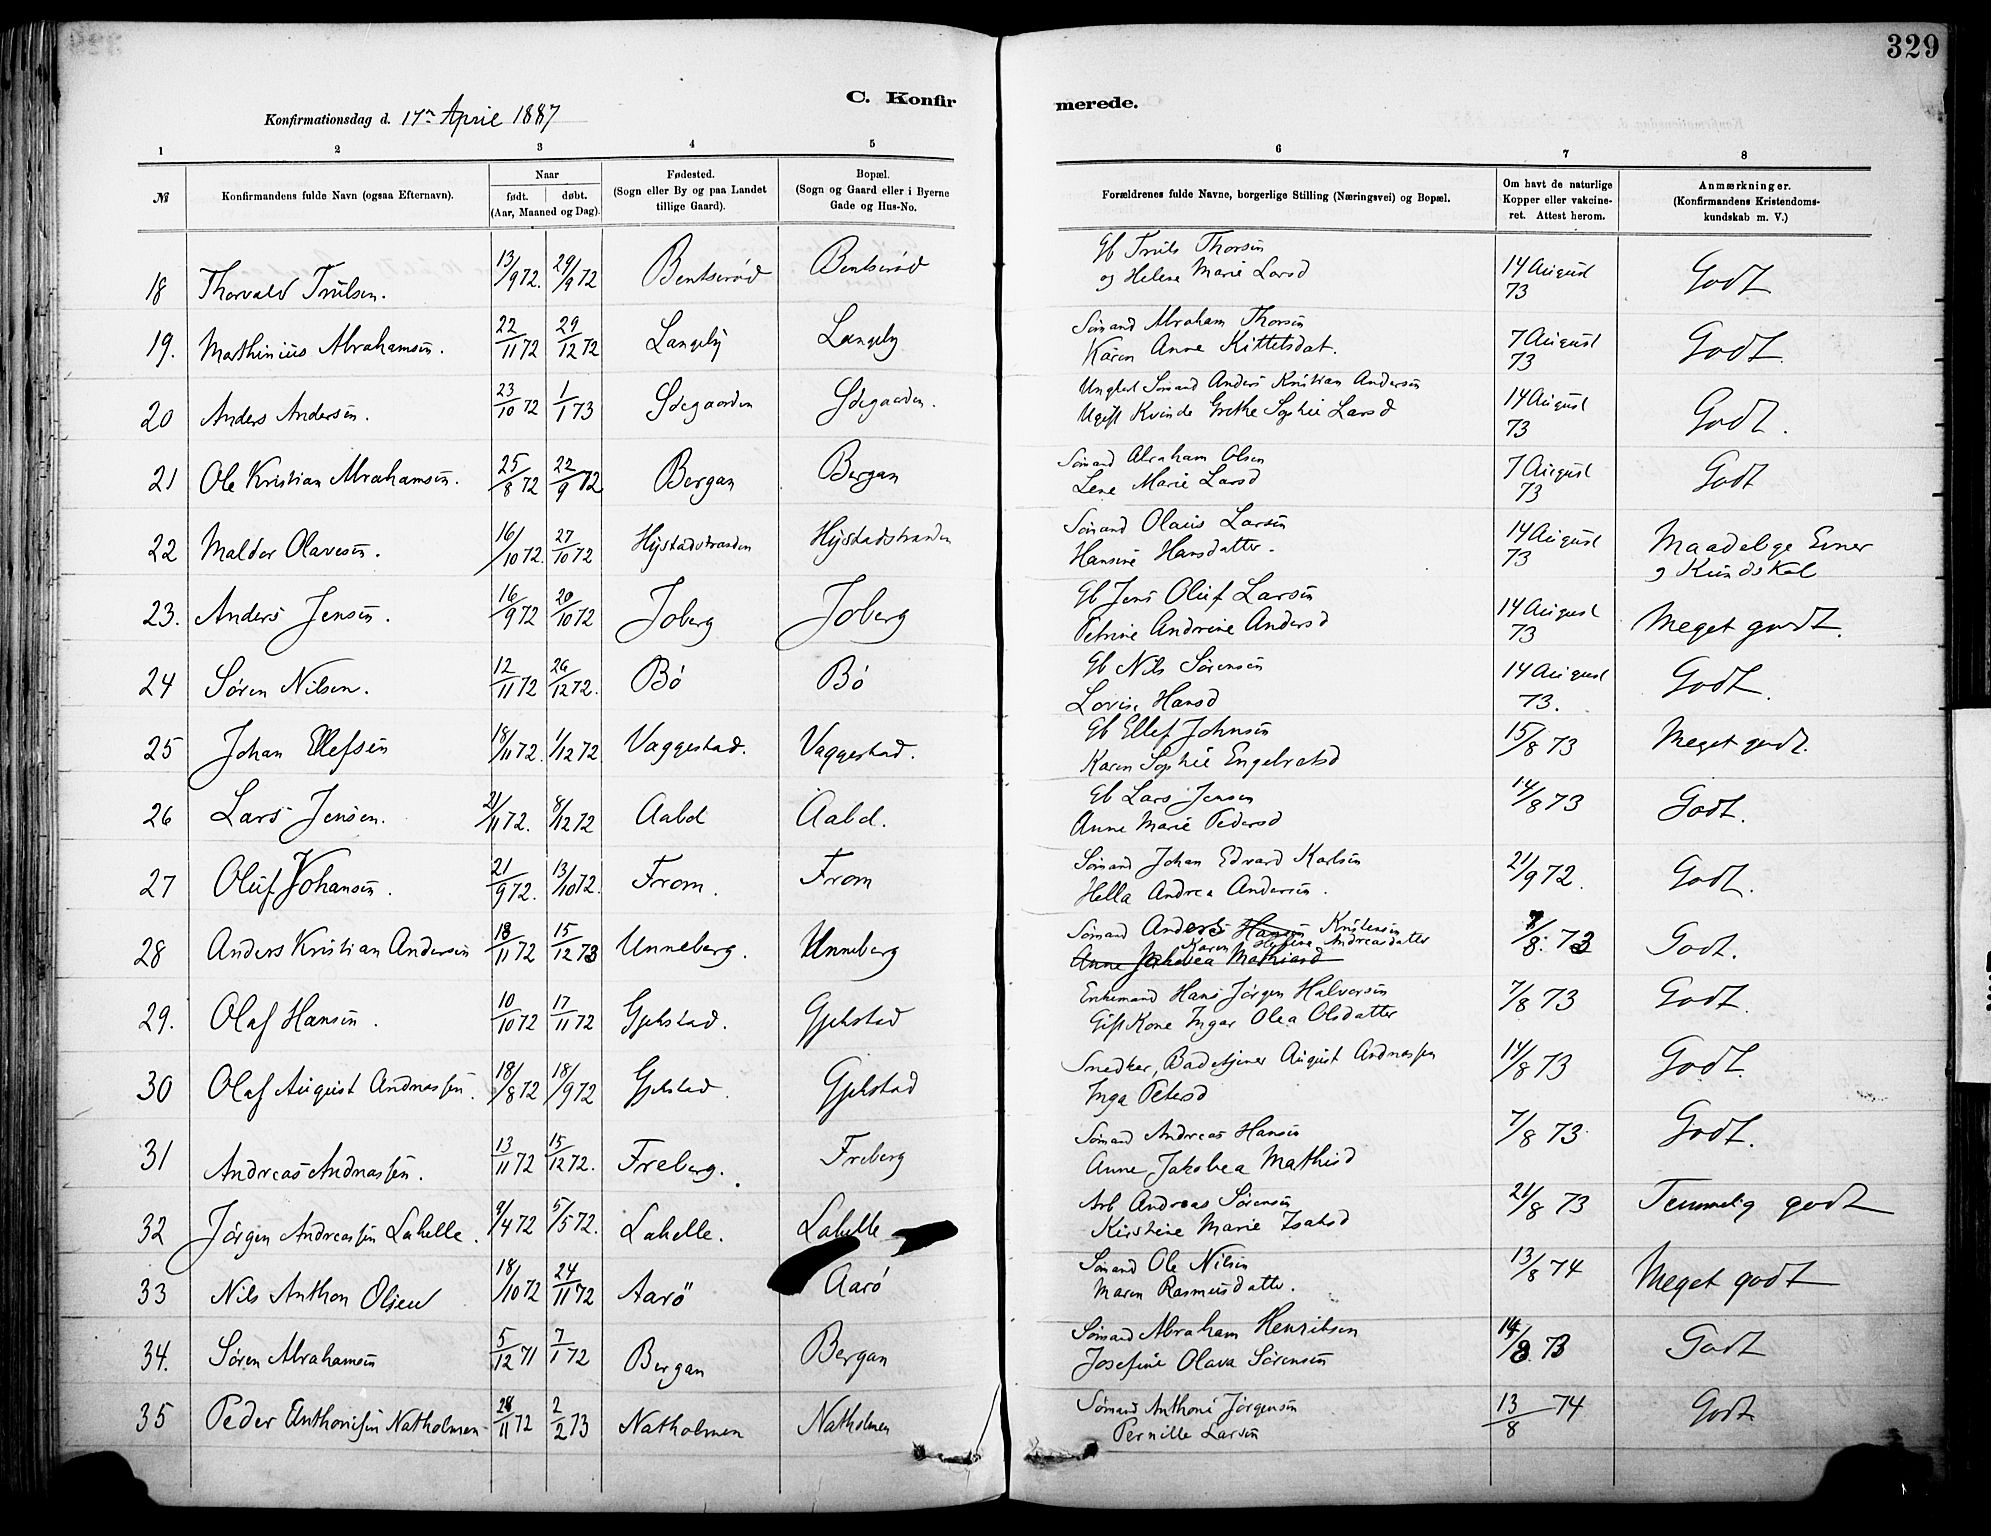 329
C. Konfirmerede.
Konfirmationsdag d. 17de April 1887
1 2 3 4 5 6 7 8
№ Konfirmandens fulde Navn (ogsaa Efternavn). Naar født. døbt. (Aar, Maaned og Dag). Fødested. (Sogn eller By og paa Landet tillige Gaard). Bopæl. (Sogn og Gaard eller i Byerne Gade og Hus-No. Forældrenes fulde Navne, borgerlige Stilling (Næringsvei) og Bopæl. Om havt de naturlige Kopper eller vakcineret. Attest herom. Anmærkninger. (Konfirmandens Kristendomskundskab m. V.)
18 Thorvald Trulsen. 13/9 72. 29/9 72 Bentserød Bentserød Gb Truls Thorsen og Helene Marie Larsd 14 August 73 Godt
19. Mathinius Abrahamsen. 22/11 72 29/12 72 Langeby Langeby Sømand Abraham Thorsen Karen Anne Kittelsdat. 7 August 73 Godt
20 Anders Andersen. 23/10 72 1/1 73 Ødegaarden Ødegaarden. Ungkarl Sømand Anders Kristian Andersen Ugift Kvinde Grethe Sophie Larsd 14 August 73 Godt.
21 Ole Kristian Abrahamsen. 25/8 72 22/9 72 Bergan Bergan Sømand Abraham Olsen Lene Marie Larsd 7 August 73 Godt
22 Maldor Olavesen. 16/10 72. 27/10 72 Hystadstranden Hystadstranden Sømand Olaus Larsen Hansine Hansdatter. 14 August 73 Maadelige Evner og Kundskab
23. Anders Jensen. 16/9 72 20/10 72 Joberg Joberg Gb Jens Oluf Larsen Petrine Andrine Andersd 14 August 73 Meget godt.
24 Søren Nilsen. 12/11 72 26/12 72. Bö Bö Gb Nils Sørensen Lovise Hansd 14 August 73. Godt.
25 Johan Ellefsen 18/11 72. 1/12 72 Vaggestad. Vaggestad. Gb Ellef Johnsen Karen Sophie Engebretsd 15/8 73 Meget godt.
26 Lars Jensen. 21/11 72. 8/12 72 Aabol Aabol. Gb Lars Jensen Anne Marie Pedersd 14/8 73 Godt.
27 Oluf Johansen. 21/9 72. 13/10 72. From. From Sømand Johan Edvard Karlsen Hella Andrea Andersen. 21/9 72. Godt.
28 Anders Kristian Andersen 18/11 72 15/12 73 Unneberg. Unneberg Sømand Anders Hansen Kristensen Karen Andreasdatter Anne Jakobea Mathiasd 7/8. 73 Godt.
29. Olaf Hansen. 10/10 72 17/11 72 Gjekstad. Gjekstad Enkemand Hans Jørgen Halvorsen Gift Kone Ingar Olea Olsdatter 7/8 73 Godt.
30 Olaf August Andreassen. 18/8 72 18/9 72 Gjekstad Gjekstad Snedker, Badetjener August Andreassen Inga Petersd 14/8 73 Godt.
31 Andreas Andreassen. 13/11 72 15/12 72. Freberg. Freberg Sømand Andreas Hansen Anne Jakobea Mathisd 7/8 73 Godt.
32 Jørgen Andreassen Lahelle. 9/4 72 5/5 72. Lahelle. Lahelle Arb Andreas Sørensen Kirstine Marie Isaksd 21/8 73 Temmelig godt
33 Nils Anthon Olsen 18/10 72 24/11 72 Aarö Aarö Sømand Ole Nilsen Maren Rasmusdatter. 13/8 74 Meget godt
34. Søren Abrahamsen 5/12 71 7/1 72 Bergan Bergan Sømand Abraham Henriksen Josefine Olava Sørensen 14/8. 73 Godt
35 Peder Anthonisen Natholmen 28/11 72 2/2 73 Natholmen Natholmen Sømand Anthoni Jørgensen Pernille Larsen 13/8 74 Godt